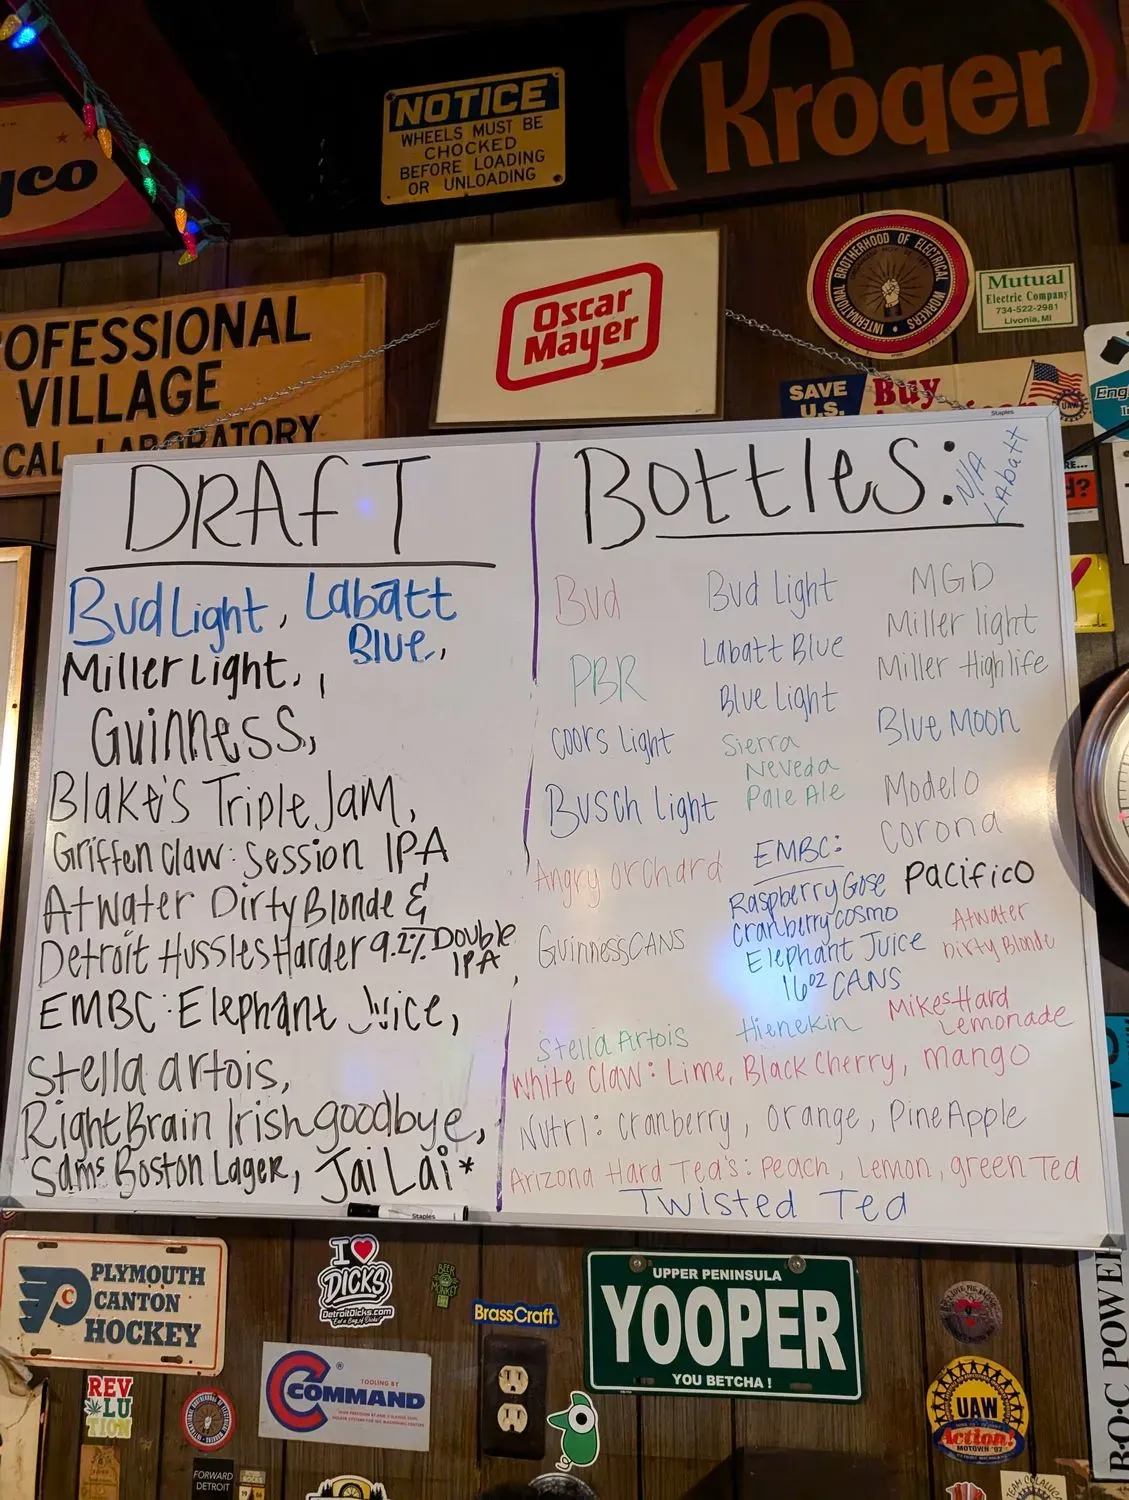 NOTICE
WHEELS MUST BE
CHOCKED
BEFORE LOADING
OR UNLOADING
Kroger
yco
OFESSIONAL
VILLAGE
CAL LABORATORY
Oscar
Mayer
INTERNATIONAL BROTHERHOOD OF ELECTRICAL WORKERS
Mutual
Electric Company
734-522-2981
Livonia, MI
SAVE
U.S.
Buy
UAW
Eng
Staples
DRAFT
Bud Light, Labatt
Blue,
Miller Light,
Guinness,
Blake's Triple Jam,
Griffen Claw: Session IPA
Atwater Dirty Blonde &
Detroit Hussles Harder 9.2% Double
IPA,
EMBC: Elephant Juice,
Stella artois,
Right Brain Irish goodbye,
Sams Boston Lager, Jai Lai*
Bottles:
N/A
Labatt
Bud
PBR
Coors Light
Busch Light
Angry orchard
Guinness CANS
Stella Artois
Bud Light
Labatt Blue
Blue Light
Sierra
Neveda
Pale Ale
EMBC:
Raspberry Gose
Cranberry cosmo
Elephant Juice
16oz CANS
Hienekin
MGD
Miller light
Miller Highlife
Blue Moon
Modelo
Corona
Pacifico
Atwater
Dirty Blonde
Mikes Hard
Lemonade
White Claw: Lime, Black Cherry, mango
Nutrl: Cranberry, orange, PineApple
Arizona Hard Tea's: Peach, Lemon, green Tea
Twisted Tea
Staples
PLYMOUTH
CANTON
HOCKEY
I
DICKS
DetroitDicks.com
"Eat a Bag of Dicks"
BEER
MONKEY
BrassCraft
UPPER PENINSULA
YOOPER
YOU BETCHA !
REV
LU
TION
TOOLING BY
COMMAND
FORWARD
DETROIT
UAW
Action!
MOTOWN '97
B·O·C POWER